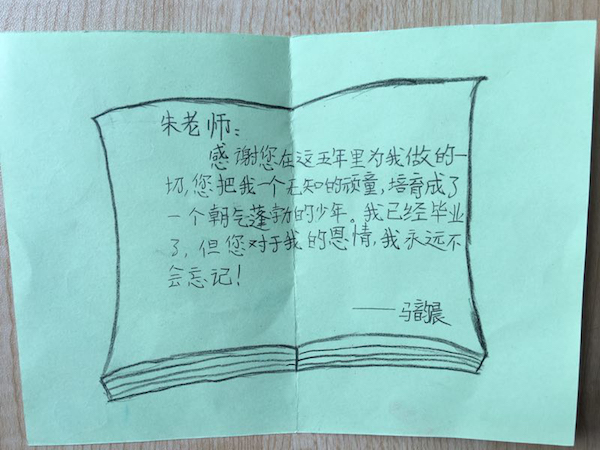 朱老师：
感谢您在这五年里为我做的一
切，您把我一个无知的顽童，培育成了
一个朝气蓬勃的少年。我已经毕业
了，但您对于我的恩情，我永远不
会忘记！
——马韵晨